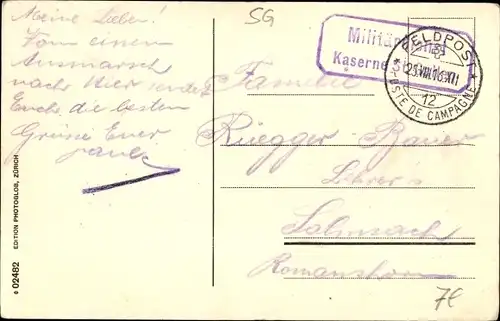 SG
Meine Lieben!
Von einem
Ausmarsch
nach hier sendet
Euch die besten
Grüsse Euer
Paul
Militär
Kaserne
FELDPOST
23.VIII.16.XI
12
POSTE DE CAMPAGNE
Familie
Rüegger Bauer
Lehrer's
Salmsach
Romanshorn
EDITION PHOTOGLOB, ZÜRICH
02482
7.-